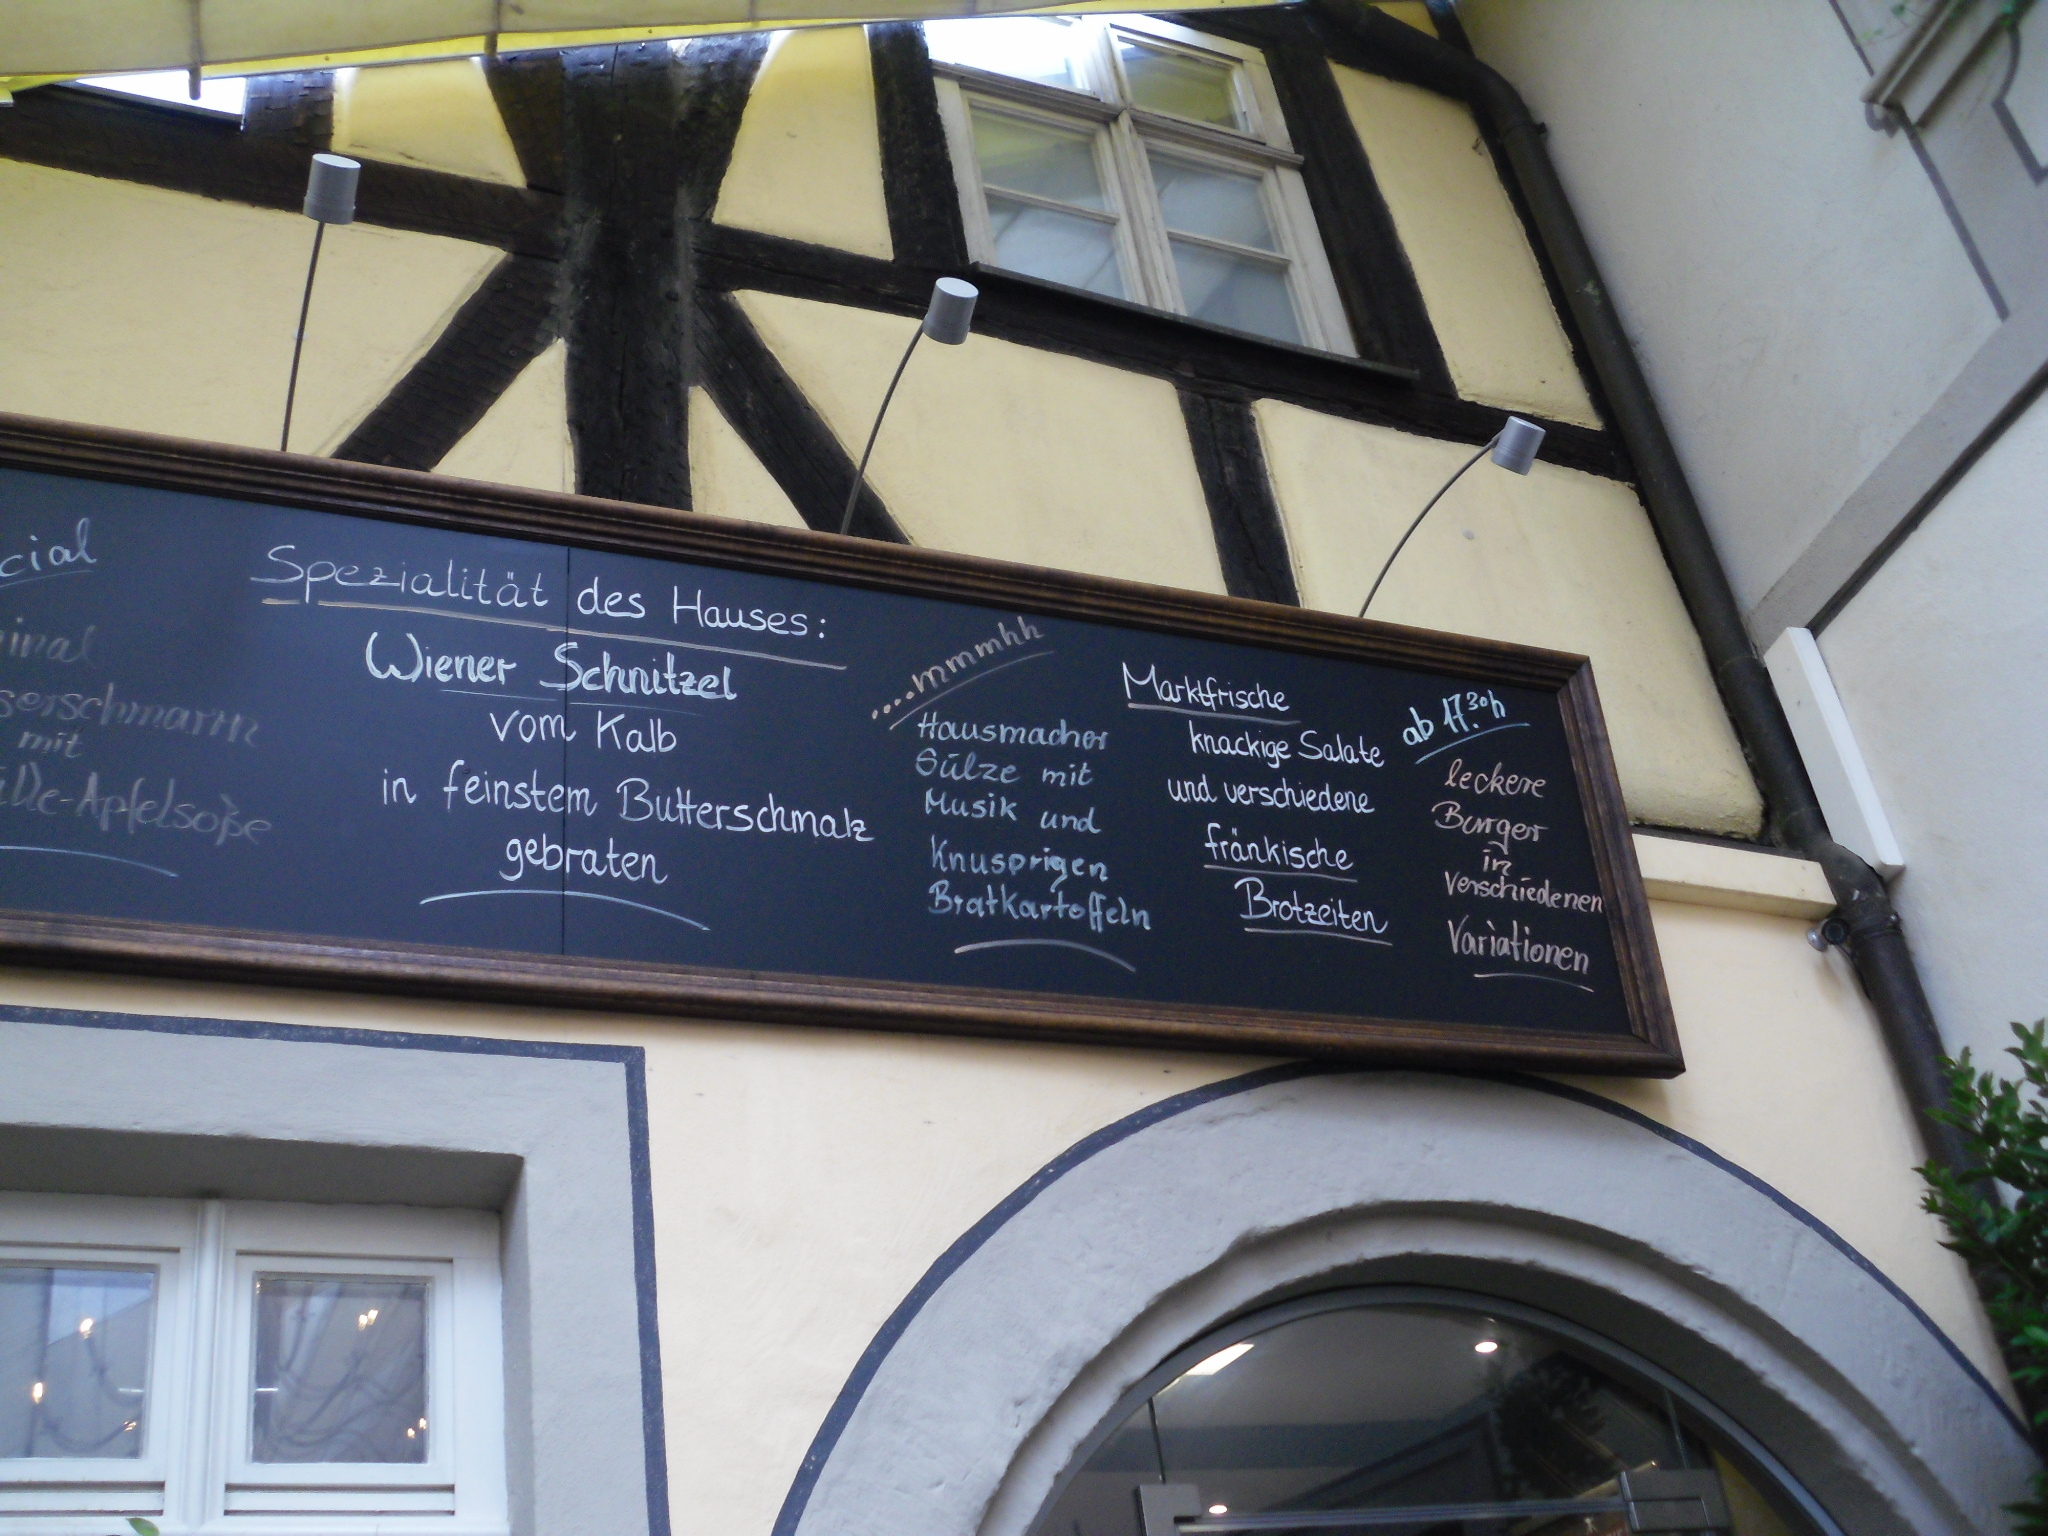 cial
inal
serschmarrn
mit
Apfelsoße
Spezialität des Hauses:
Wiener Schnitzel
vom Kalb
in feinstem Butterschmalz
gebraten
....mmmhh
Hausmacher
Sülze mit
Musik und
Knusprigen
Bratkartoffeln
Marktfrische
knackige Salate
und verschiedene
fränkische
Brotzeiten
ab 17.30h
leckere
Burger
in
verschiedenen
Variationen